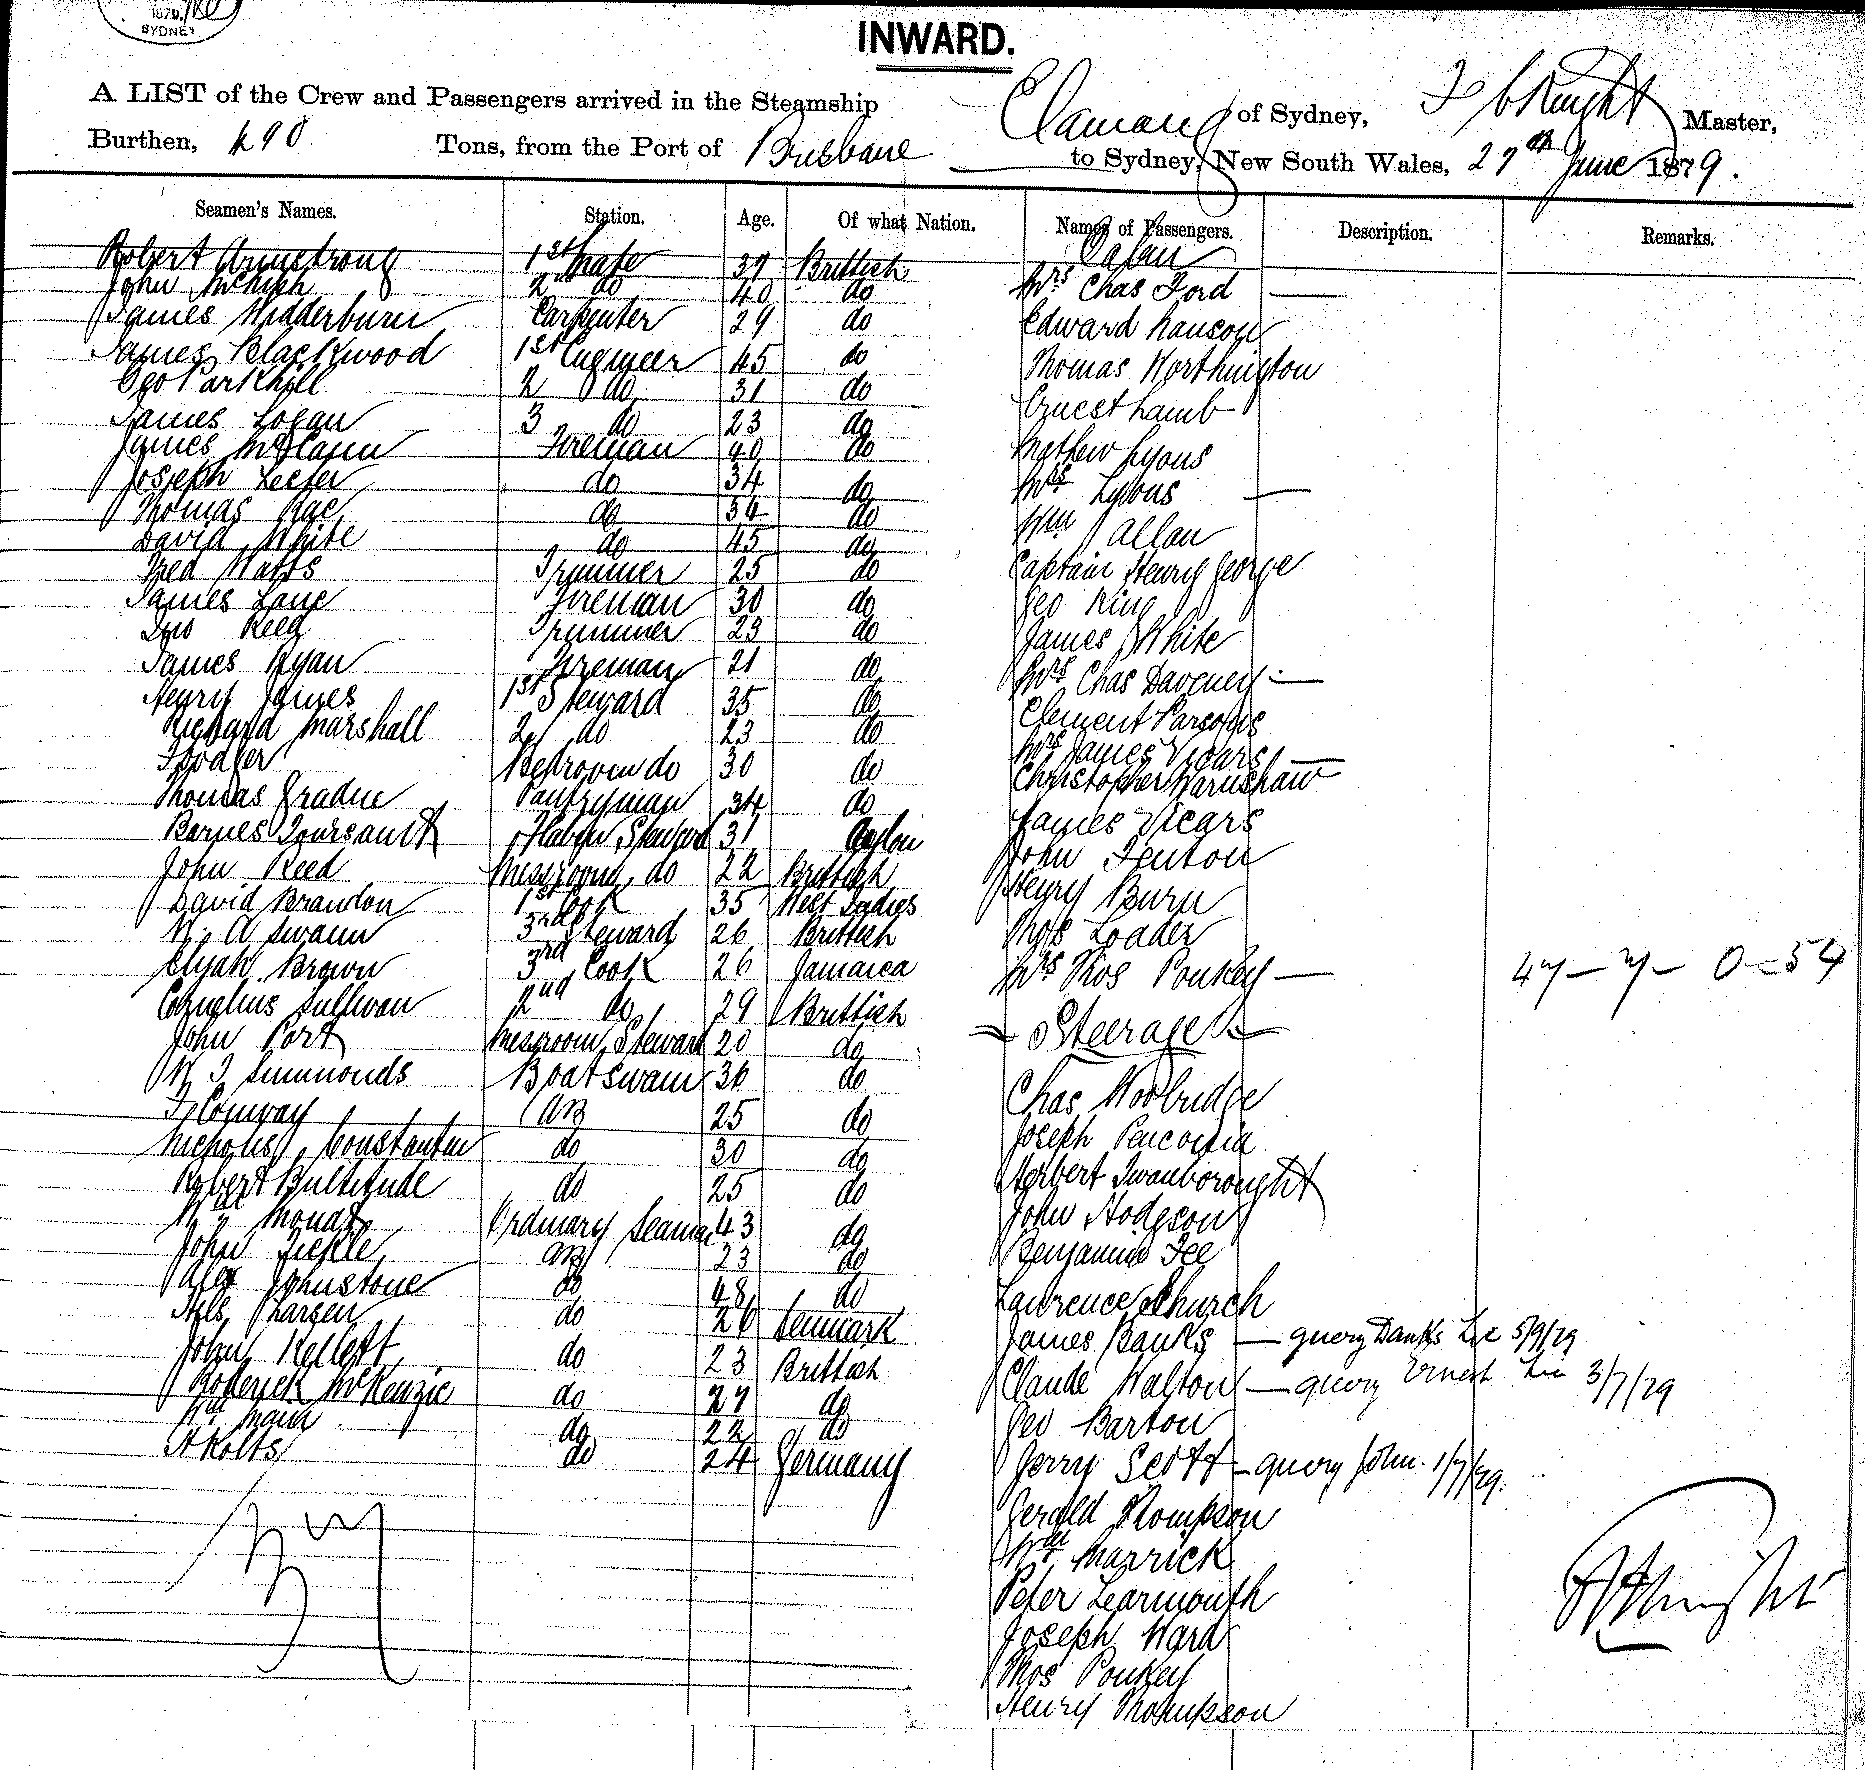 1879
SYDNEY
INWARD.
A LIST of the Crew and Passengers arrived in the Steamship of Sydney, Master,
Burthen, 490 Tons, from the Port of Brisbane to Sydney, New South Wales, 27th June 1879.
Seamen's Names. Station. Age. Of what Nation. Names of Passengers. Description. Remarks.
Robert Armstrong 1st Mate 39 Brittish
John 2nd do 40 do Mrs Chas Ford —
James Widderburn Carpenter 29 do Edward Hanson
James Blackwood 1st Engineer 45 do Thomas Worthington
Geo Parkhill 2 do 31 do Ernest Lamb
James Logan 3 do 23 do Mathew Lyons
James McCann Fireman 40 do Mrs Lyons —
Joseph Leeter do 34 do Wm Allan
Thomas Rae do 34 do Captain Henry George
David White do 45 do Geo King
Fred Watts Trimmer 25 do James White
James Lane Fireman 30 do Mrs Chas Daveney —
Reed Trimmer 23 do Clement Parsons
James Ryan Fireman 21 do Mrs James Vicars —
Henry Jaines 1st Steward 35 do Christopher Warnshaw
Richard Marshall 2 do 23 do James Vicars
Bedroom do 30 do John Fenton
Thomas Pantryman 34 do Henry Burn
Barnes Steward 31 Ceylon Thos Loader
John Reed Messroom do 22 Brittish Mrs Thos Poukey —
David Brandon 1st Cook 35 West Indies
W. A Swann 3rd Steward 26 Brittish
Elijah Brown 3rd Cook 26 Jamaica
Cornelius Sullivan 2nd do 29 Brittish Steerage
John Port Messroom Steward 20 do
W I Simmonds Boatswain 36 do Chas Woolridge
F Conway AB 25 do Joseph
Nicholis Constantin do 30 do Herbert Swanborought
Robert Bultitude do 25 do John Hodgson
Wm Ordinary Seaman 43 do Benjamin Fee
John AB 23 do Lawrence Church
Alex Johnstone do 48 do James Banks — query Danks 5/9/79
Nels Larsen do 26 Denmark Claude Walton — query Ernest 3/7/79
John Kellett do 23 Brittish Geo Barton
Roderick McKenzie do 27 do Jerry Scott — query John. 1/7/79.
Wm Main do 22 do Gerald Thompson
A Kolts do 24 Germany Wm Marrick
Peter Learmonth
Joseph Ward
Thos Poukey
Henry Thompson